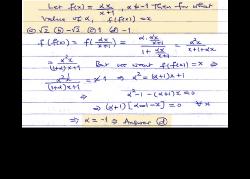 Let f(x) = αx/(x+1), x ≠ -1 Then for what
value of α, f(f(x)) = x
(a) √2 (b) -√2 (c) 1 (d) -1
f(f(x)) = f(αx/(x+1)) = (α·αx/(x+1))/(1+αx/(x+1)) = α²x/(x+1+αx)
= α²x/((1+α)x+1) But we want f(f(x)) = x ⇒
α²x/((1+α)x+1) = x ⇒ α² = (α+1)x+1
⇒ α²-1-(α+1)x = 0
⇒ (α+1)[α-1-x] = 0 ∀ x
⇒ α = -1 ⇒ Answer (d)